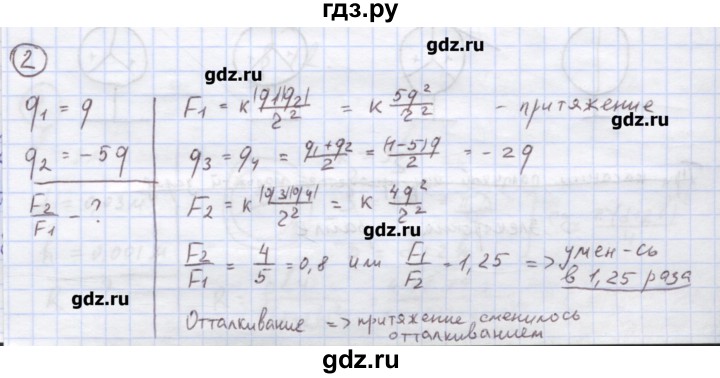 гдз.ру
gdz.ru
gdz.ru
2
q₁ = q
F₁ = к |q₁||q₂|/r² = к 5q²/r² - притяжение
gdz.ru
q₂ = -5q
q₃ = q₄ = (q₁+q₂)/2 = (1-5)q/2 = -2q
F₂/F₁ - ?
F₂ = к |q₃||q₄|/r² = к 4q²/r²
gdz.ru
F₂/F₁ = 4/5 = 0,8 или F₁/F₂ = 1,25 => умен-сь
в 1,25 раза
gdz.ru
gdz.ru
Отталкивание => притяжение сменилось
отталкиванием
gdz.ru